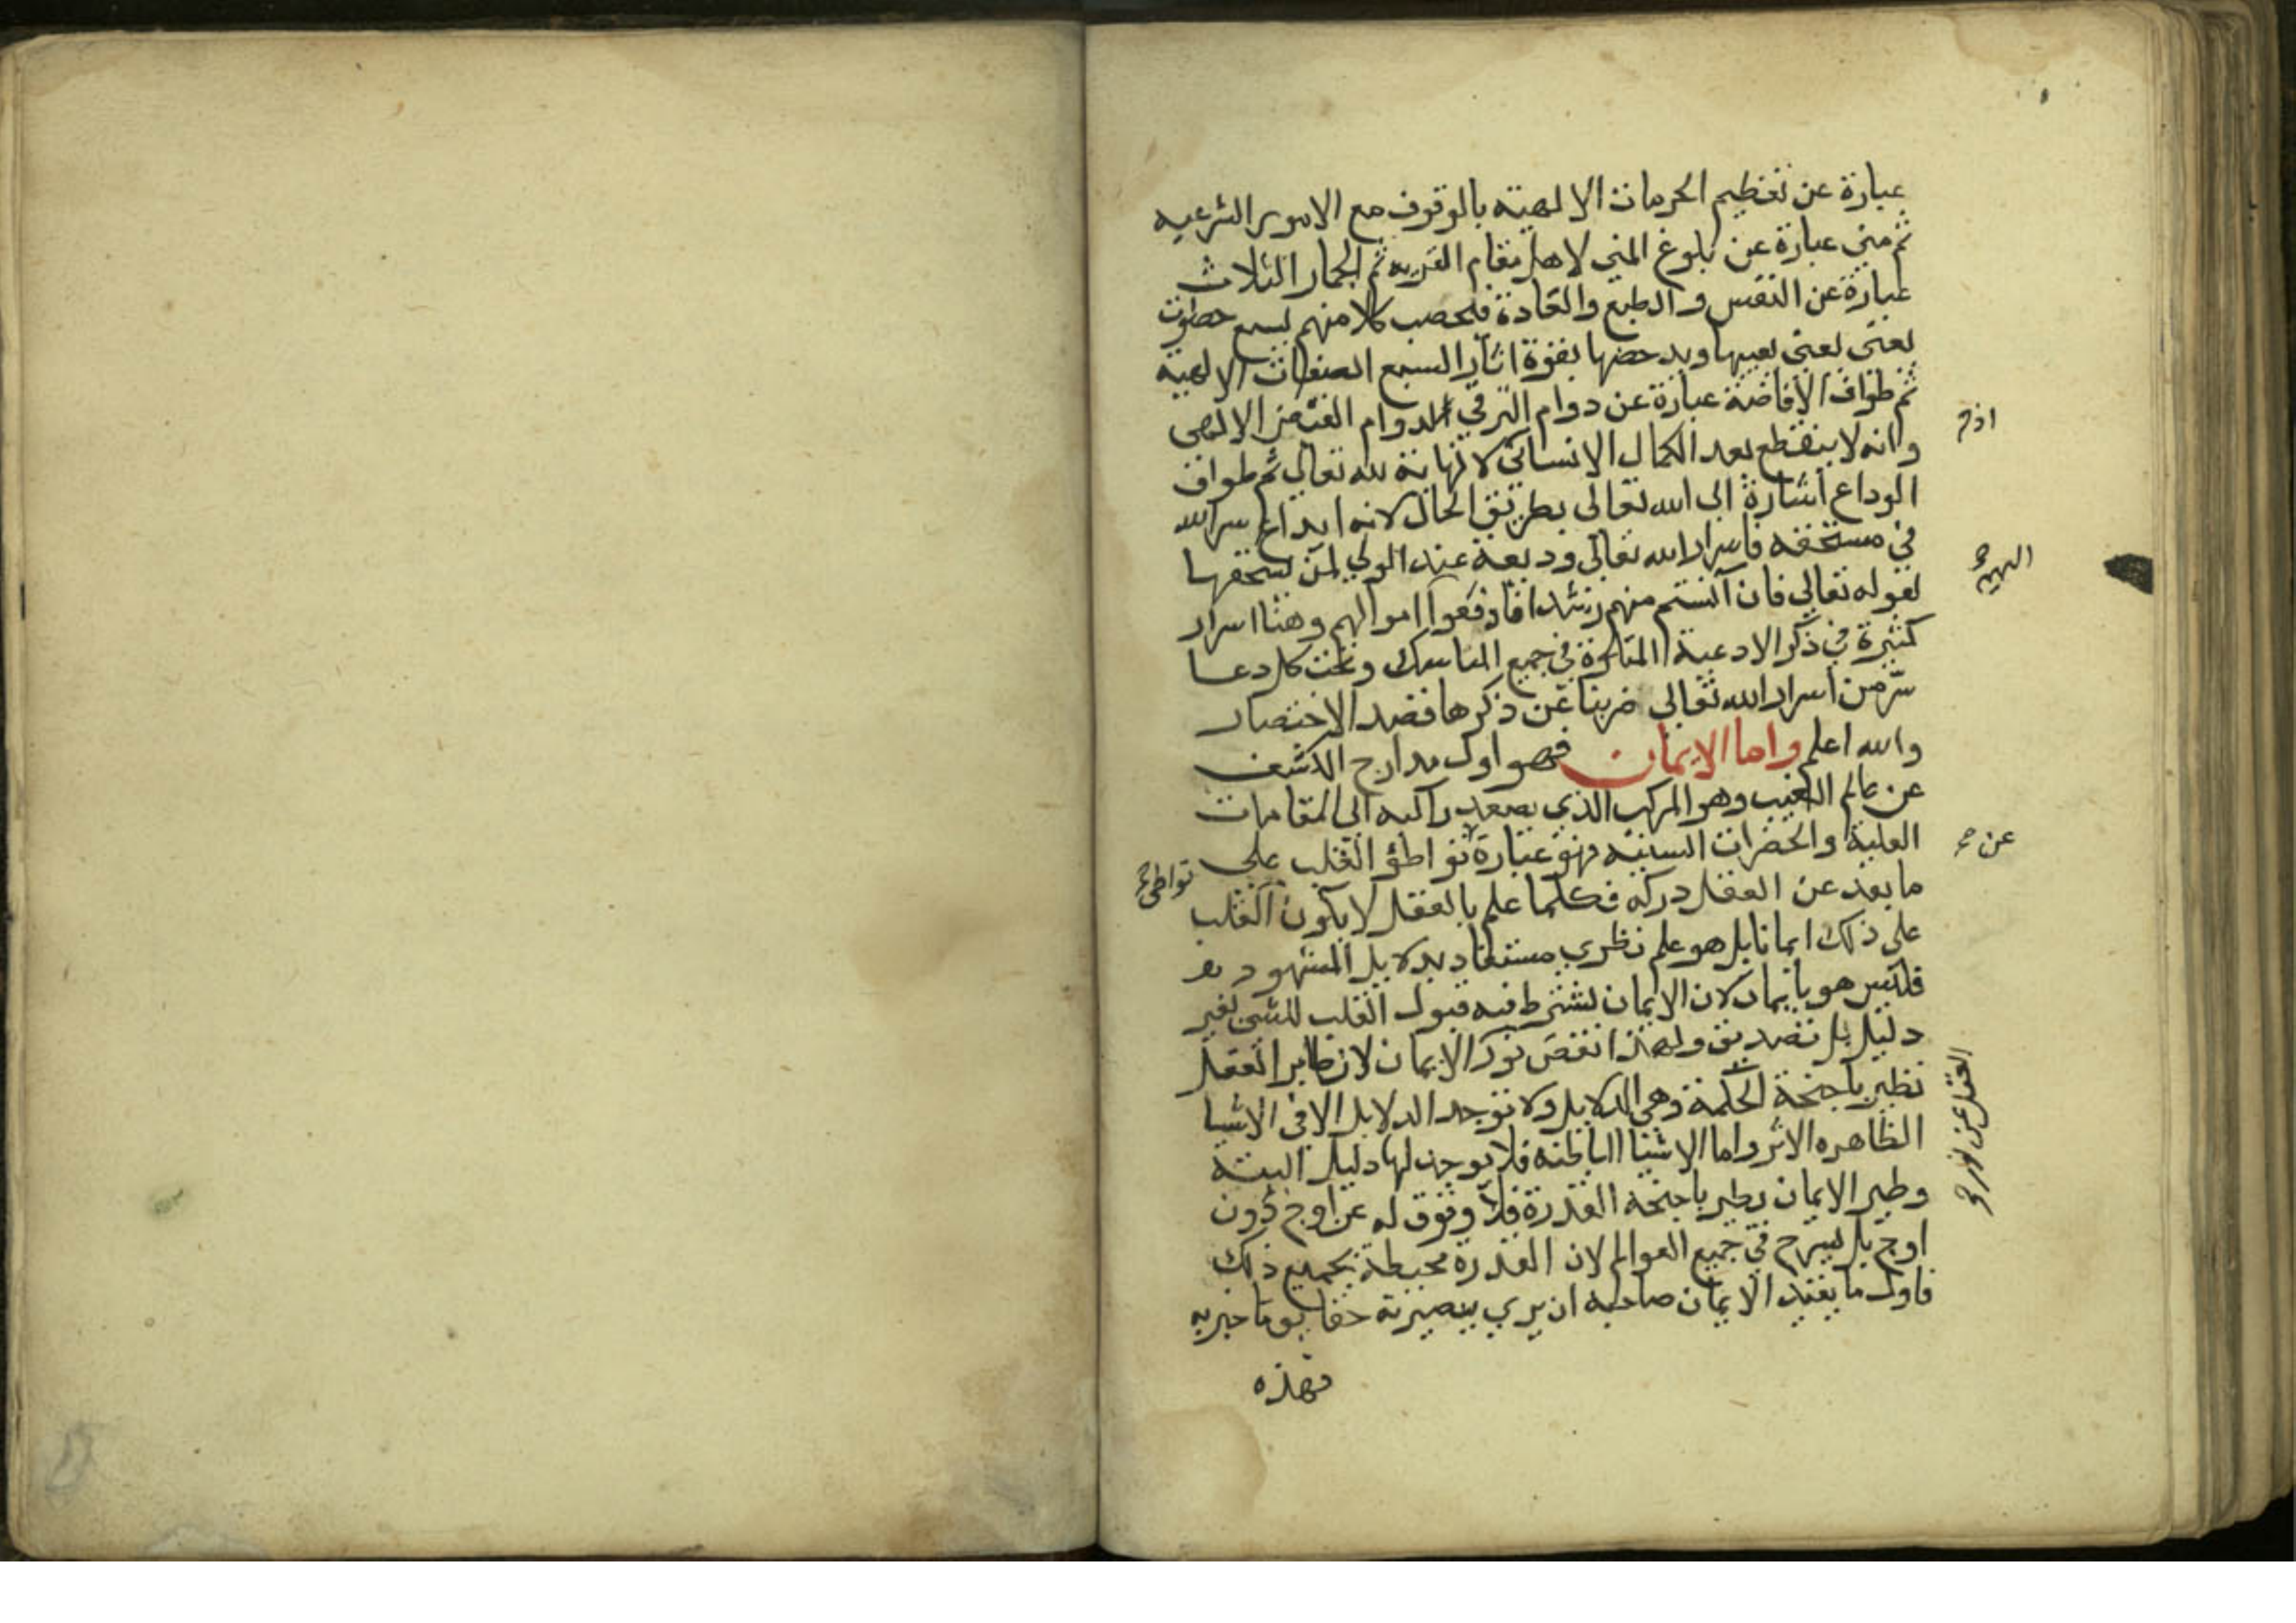 عبارة عن تعظيم الحرمات الالهية بالوقوف مع الامور الشرعيه
ثم منى عبارة عن بلوغ المنى لاهل مقام القربه ثم الجمار الثلاث
عبارة عن النفس والطبع والعادة فيحصب كلا منهم بسبع حصوات
يعنى يعنى يغيبها ويدحضها بقوة اثار السبع الصفات الالهية
ثم طواف الافاضة عبارة عن دوام الترقي لدوام الفيض الالهى
وانه لا ينقطع بعد الكمال الانسانى لا نهاية لله تعالى ثم طواف
اذ
الوداع اشارة الى الله تعالى بطريق الحال لانه ايداع سر الله
في مستحقه فاسرار الله تعالى وديعة عند الولي لمن يستحقها
لقوله تعالى فان آنستم منهم رشدا فادفعوا اموالهم وهنا اسرار
اليهم
كثيرة في ذكر الادعية المتلوة في جميع المناسك وتحت كل دعا
سر من اسرار الله تعالى ضربنا عن ذكرها قصد الاختصار
والله اعلم واما الايمان فهو اول مدارج الكشف
عن عالم الغيب وهو المركب الذي يصعد راكبه الى المقامات
العلية والحضرات السنية فهو عبارة تواطؤ القلب على
عن
تواطى
ما بعد عن العقل دركه فكلما علم بالعقل لا يكون القلب
على ذلك ايمانا بل هو علم نظري مستفاد بدلايل المشهود
فليس هو بايمان لان الايمان يشترط فيه قبول القلب للشى لغير
دليل بل تصديق ولهذا نقص نور الايمان لان طاير العقل
العقل عن نور
تطير باجنحة الحكمة وهي الدلايل ولا توجد الدلايل الا في الاشيا
الظاهره الاثر واما الاشيا الباطنه فلا يوجد لها دليل البتة
وطير الايمان يطير باجنحة القدرة فلا وقوف له عن اوج دون
اوج بل يسرح في جميع العوالم لان القدرة محيطة بجميع ذلك
فاول ما يفيد الايمان صاحبه ان يري ببصيرته حقايق ما خبر به
فهذه